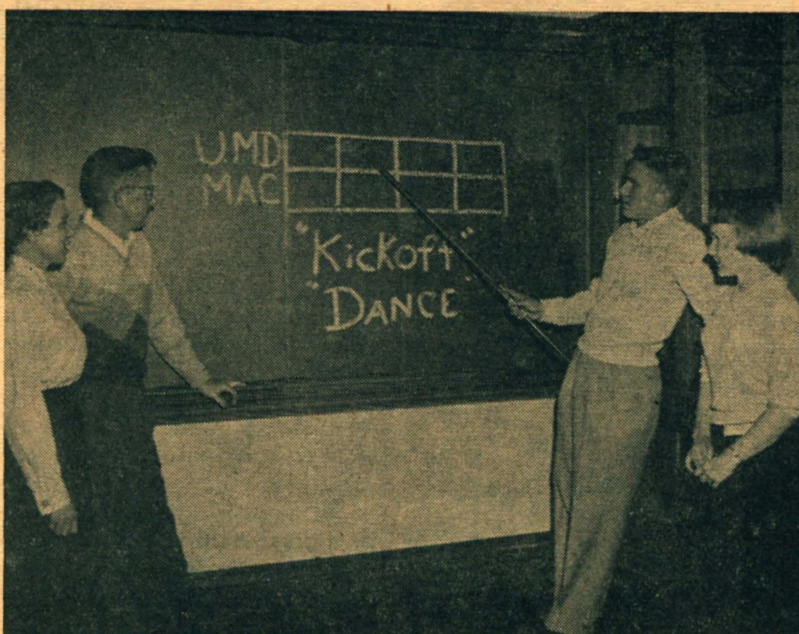 U.MD
MAC
"Kickoff"
"DANCE"